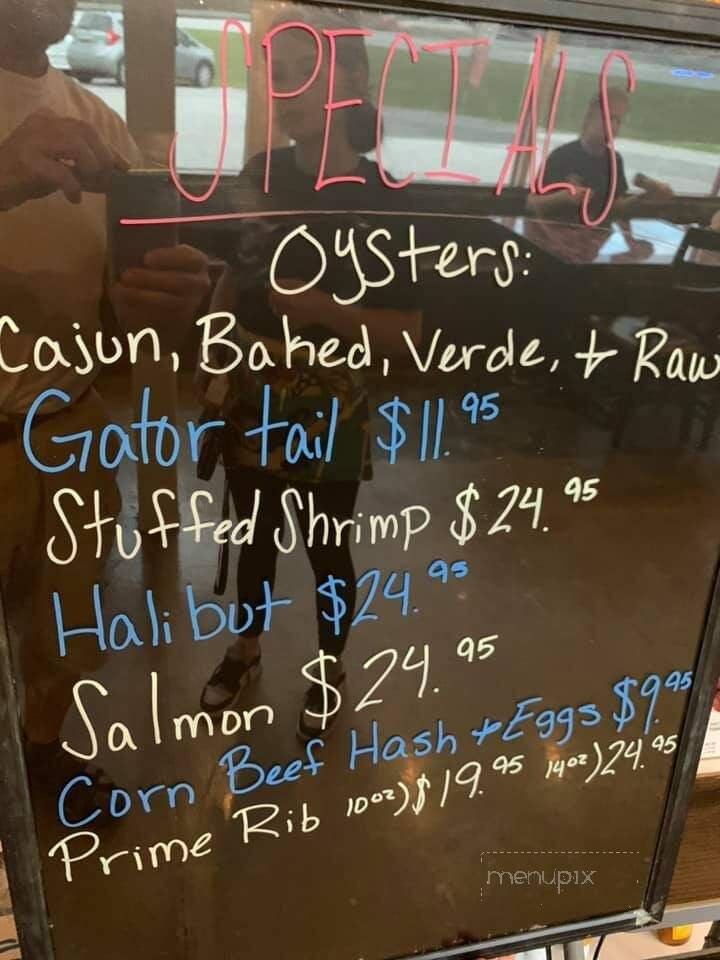 SPECIALS
Oysters:
Cajun, Baked, Verde, + Raw
Gator tail $11.95
Stuffed Shrimp $24.95
Halibut $24.95
Salmon $24.95
Corn Beef Hash + Eggs $9.95
Prime Rib 10oz)$19.95 14oz)24.95
menupix